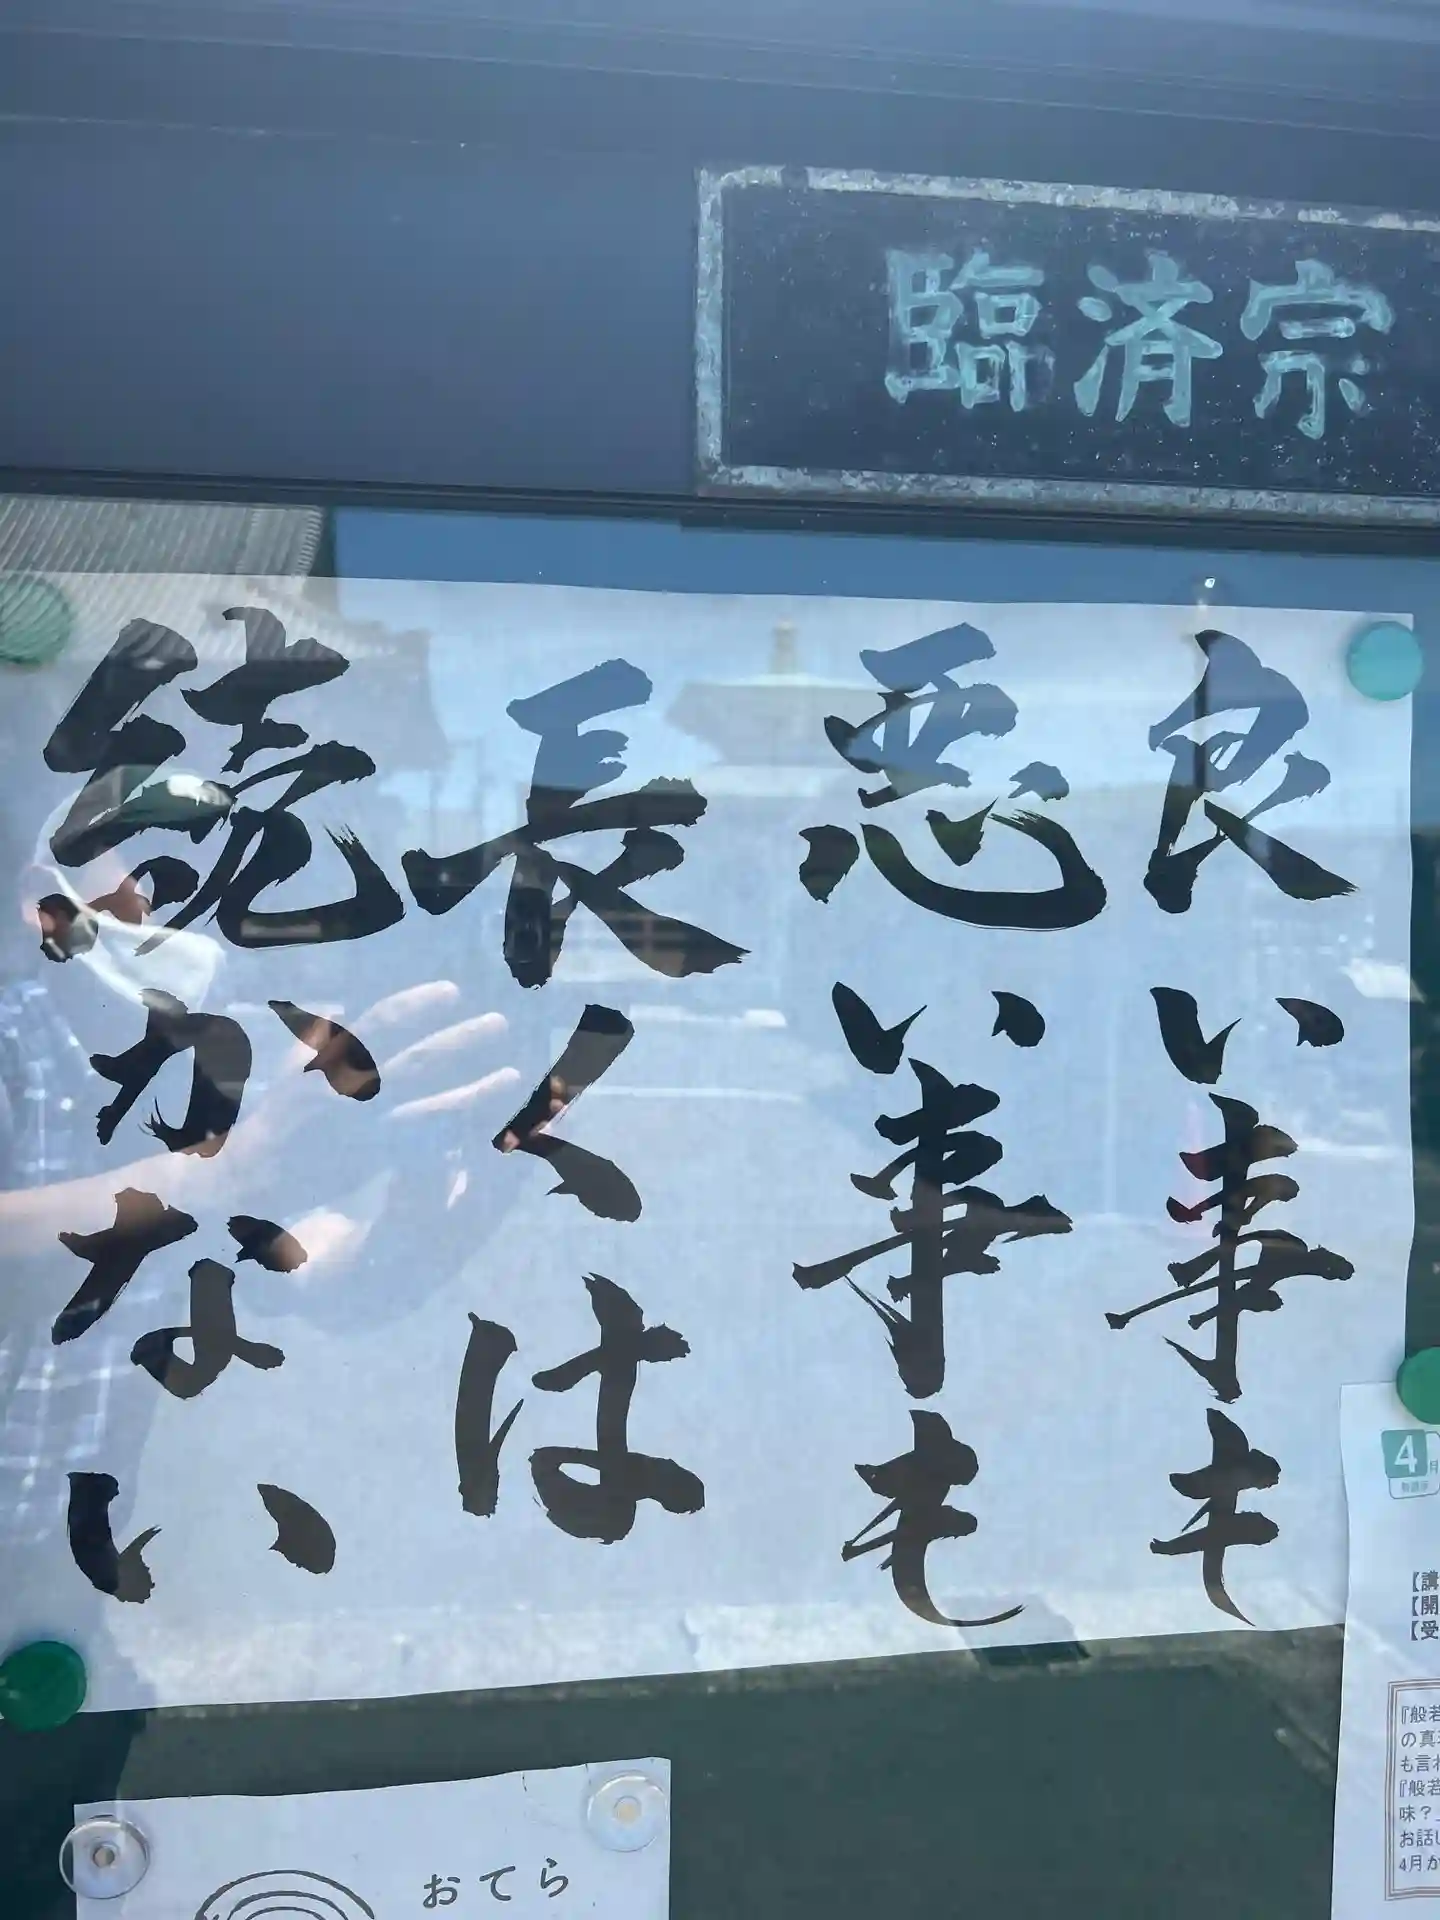 臨済宗
良い事も
悪い事も
長くは
続かない
4月
【講
【開
【受
『般若
の真
も言わ
『般若
味？」
お話し
4月か
おてら